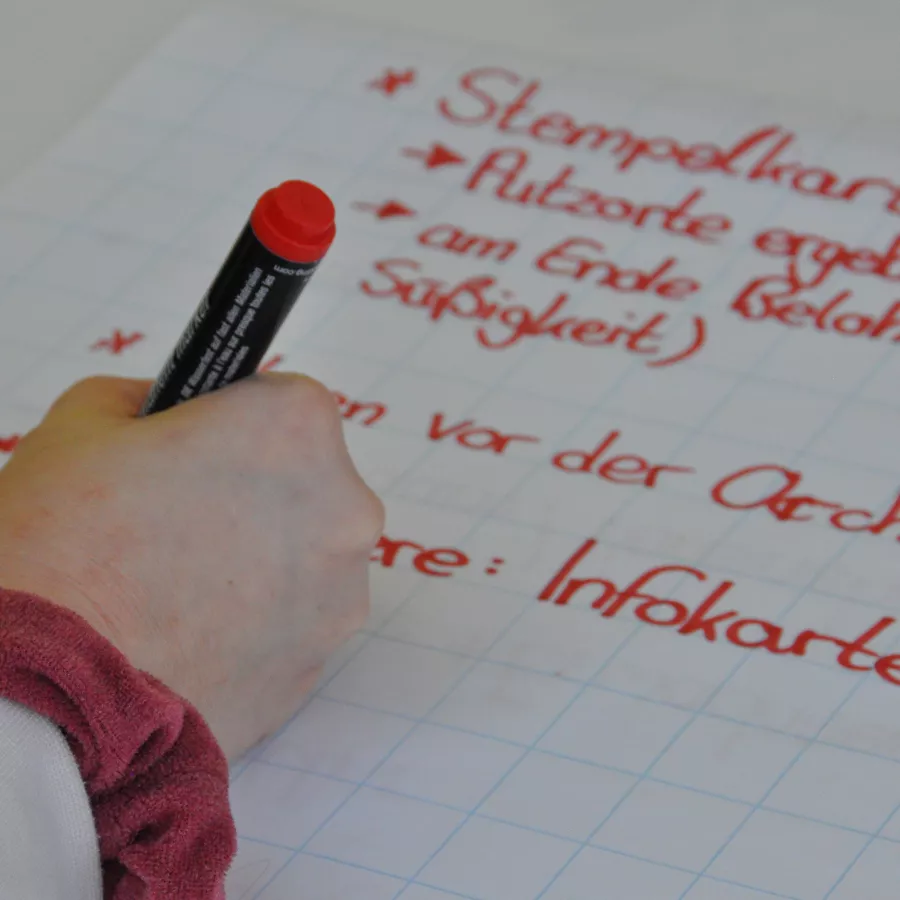 * Stempelkar
→ Putzorte ergeb
→ am Ende Beloh
Süßigkeit)
*
en vor der Arch
ere: Infokarte